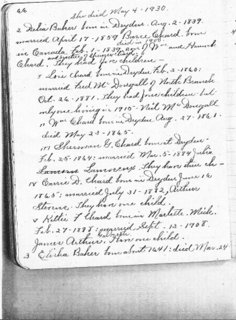 66
she died May 4 - 1930.
2 Delia Baker born in Dryden Aug. 2-1839.
married April 17-1859 Barce Chard born
in Canada, Feb. 1-18 son of Wm and
Chard. They had five children.
I Lois Chard born in Dryden Feb. 2-1860.
married Fred McDougall of North Branch
Oct. 26-1881. They had five children but
only one living in 1910 - Neil McDougall
II Wm Chard born in Dryden Aug. 27-1861.
died May 23-1865.
III Sherman G. Chard born at Dryden
Feb. 25-1864: married Mar. 5-1884 Julia
Lawrence. They have three
IV Carrie D. Chard born in Dryden June 16
1865: married July 31-1882, Arthur
Stevens. They had one child.
V Kittie L Chard born in Marlette, Mich.
Feb. 27-1888: married Sept. 12-1908
James Arthur. Have one child.
3 Elisha Baker born about 1841: died Mar. 24